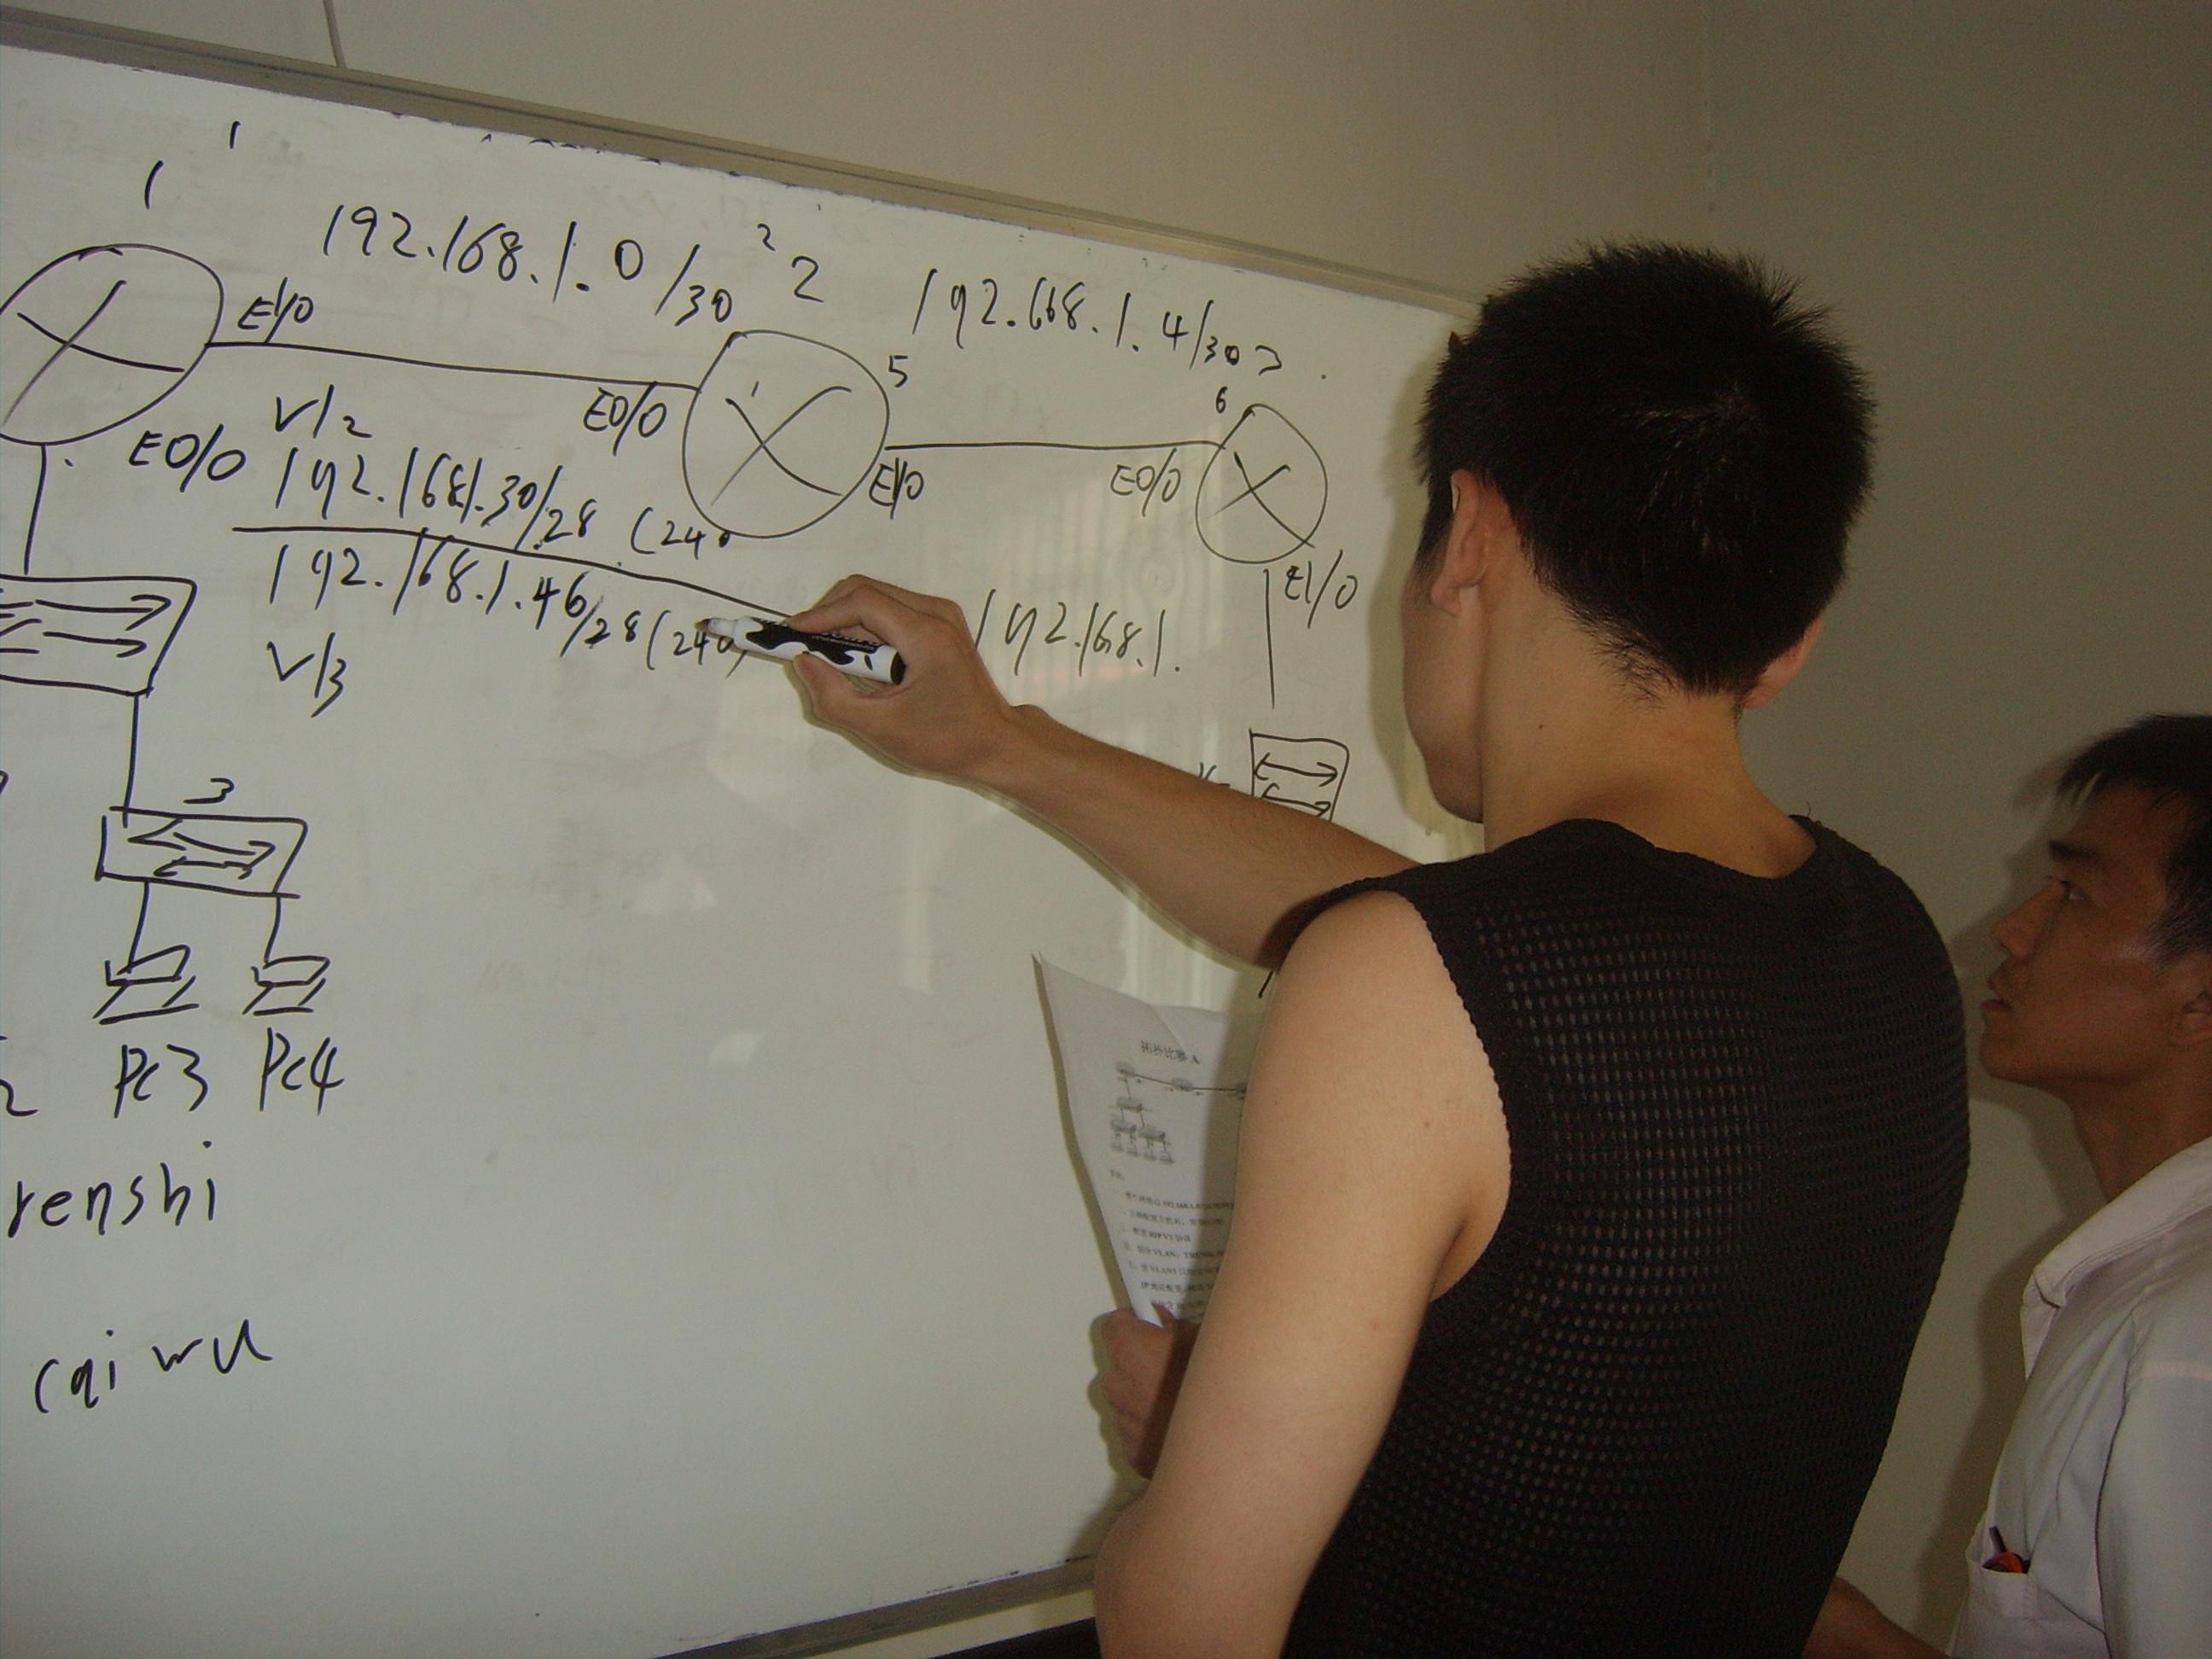 1
1
192.168.1.0/30
2
2
192.168.1.4/30
3
E1/0
E0/0
5
E1/0
6
E0/0
E1/0
E0/0
V/2
192.168.1.30/28 (240
192.168.1.46/28 (240)
V/3
192.168.1.
3
2
PC3
PC4
renshi
caiwu
拓扑比赛 A